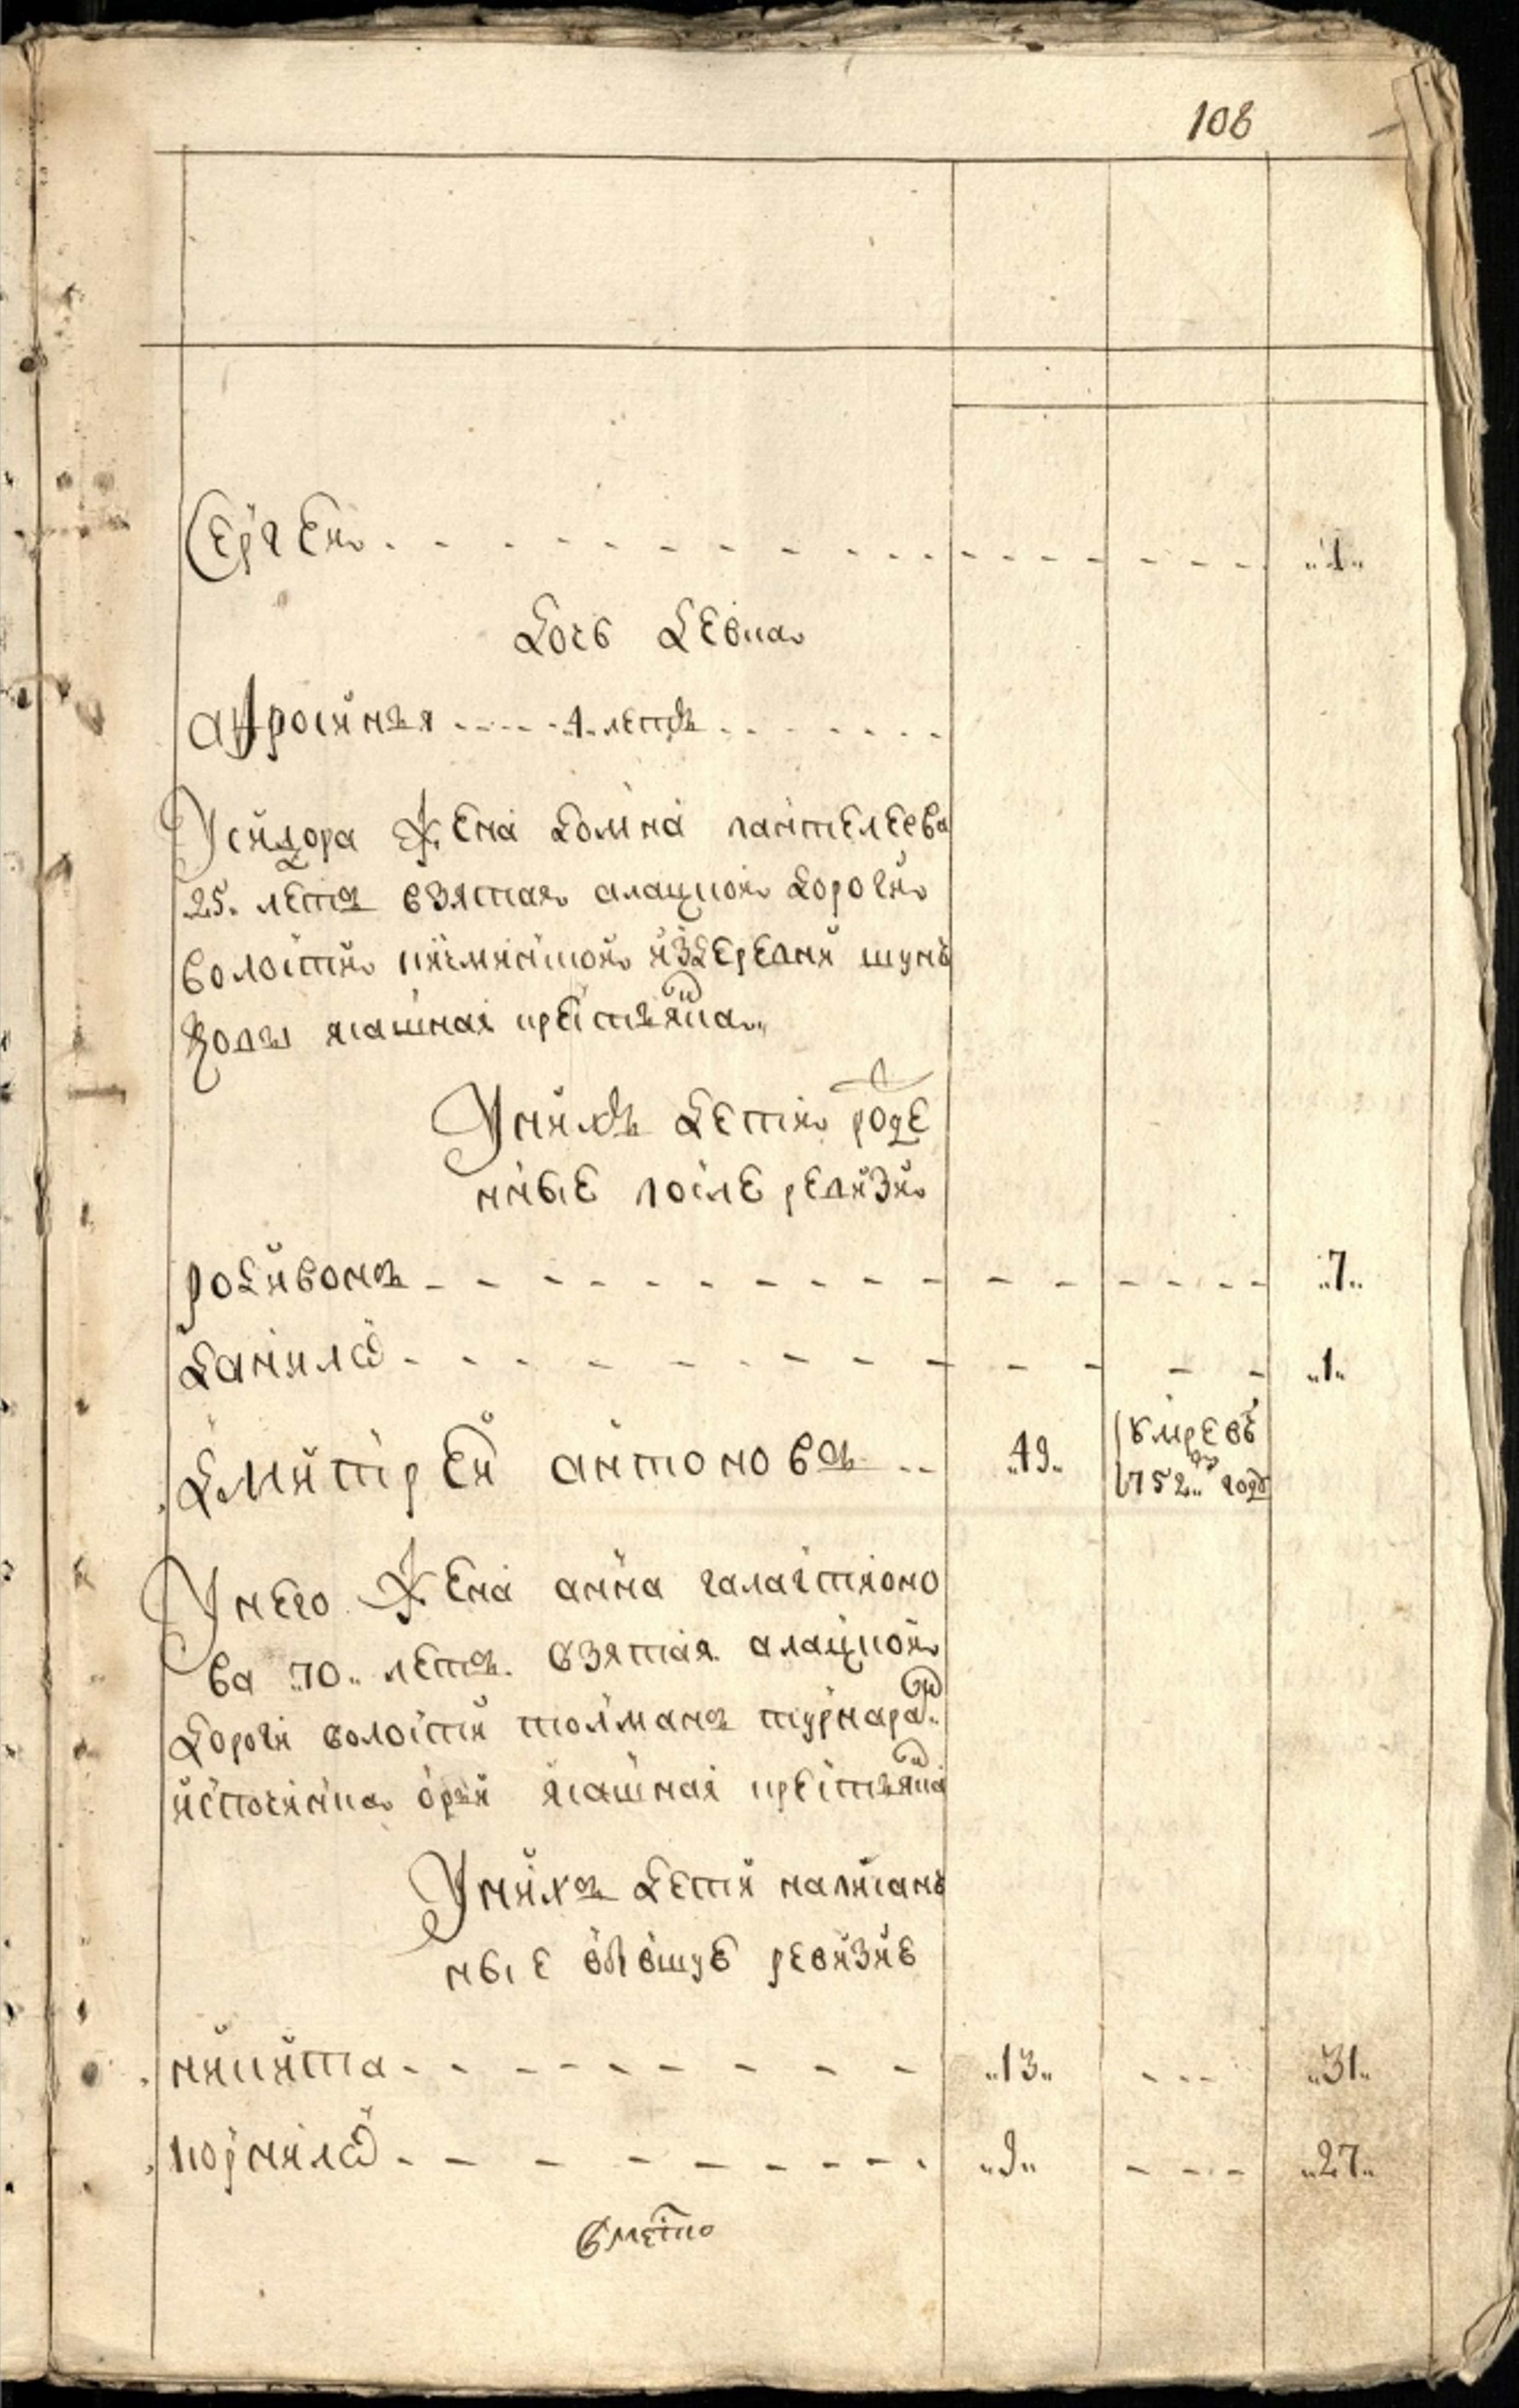 108
Сергей - - - - - - - - - - - - „1„
Дочь девка
Афросинья - - - - 4 летъ - - - - - -
У сидора жена домна пантелеева
25 летъ взятая алацкой дороги
волости из деревни шунь
ясашная крестьянка
У нихъ дети рожде
нные после ревизи
родивонъ - - - - - - - - - - - - „7„
данила - - - - - - - - - - - „1„
дмитрей антоновъ - - „49„ умре въ 1752„ году
У него жена анна галактионо
ва „70„ летъ взятая алацкой
дороги волости толманъ турнара
ис починка ясашная крестьянка
У нихъ дети написан
ные в бывшую ревизию
никита - - - - - - - - „13„ - - - „31„
корнила - - - - - - - - „9„ - - - „27„
вместо